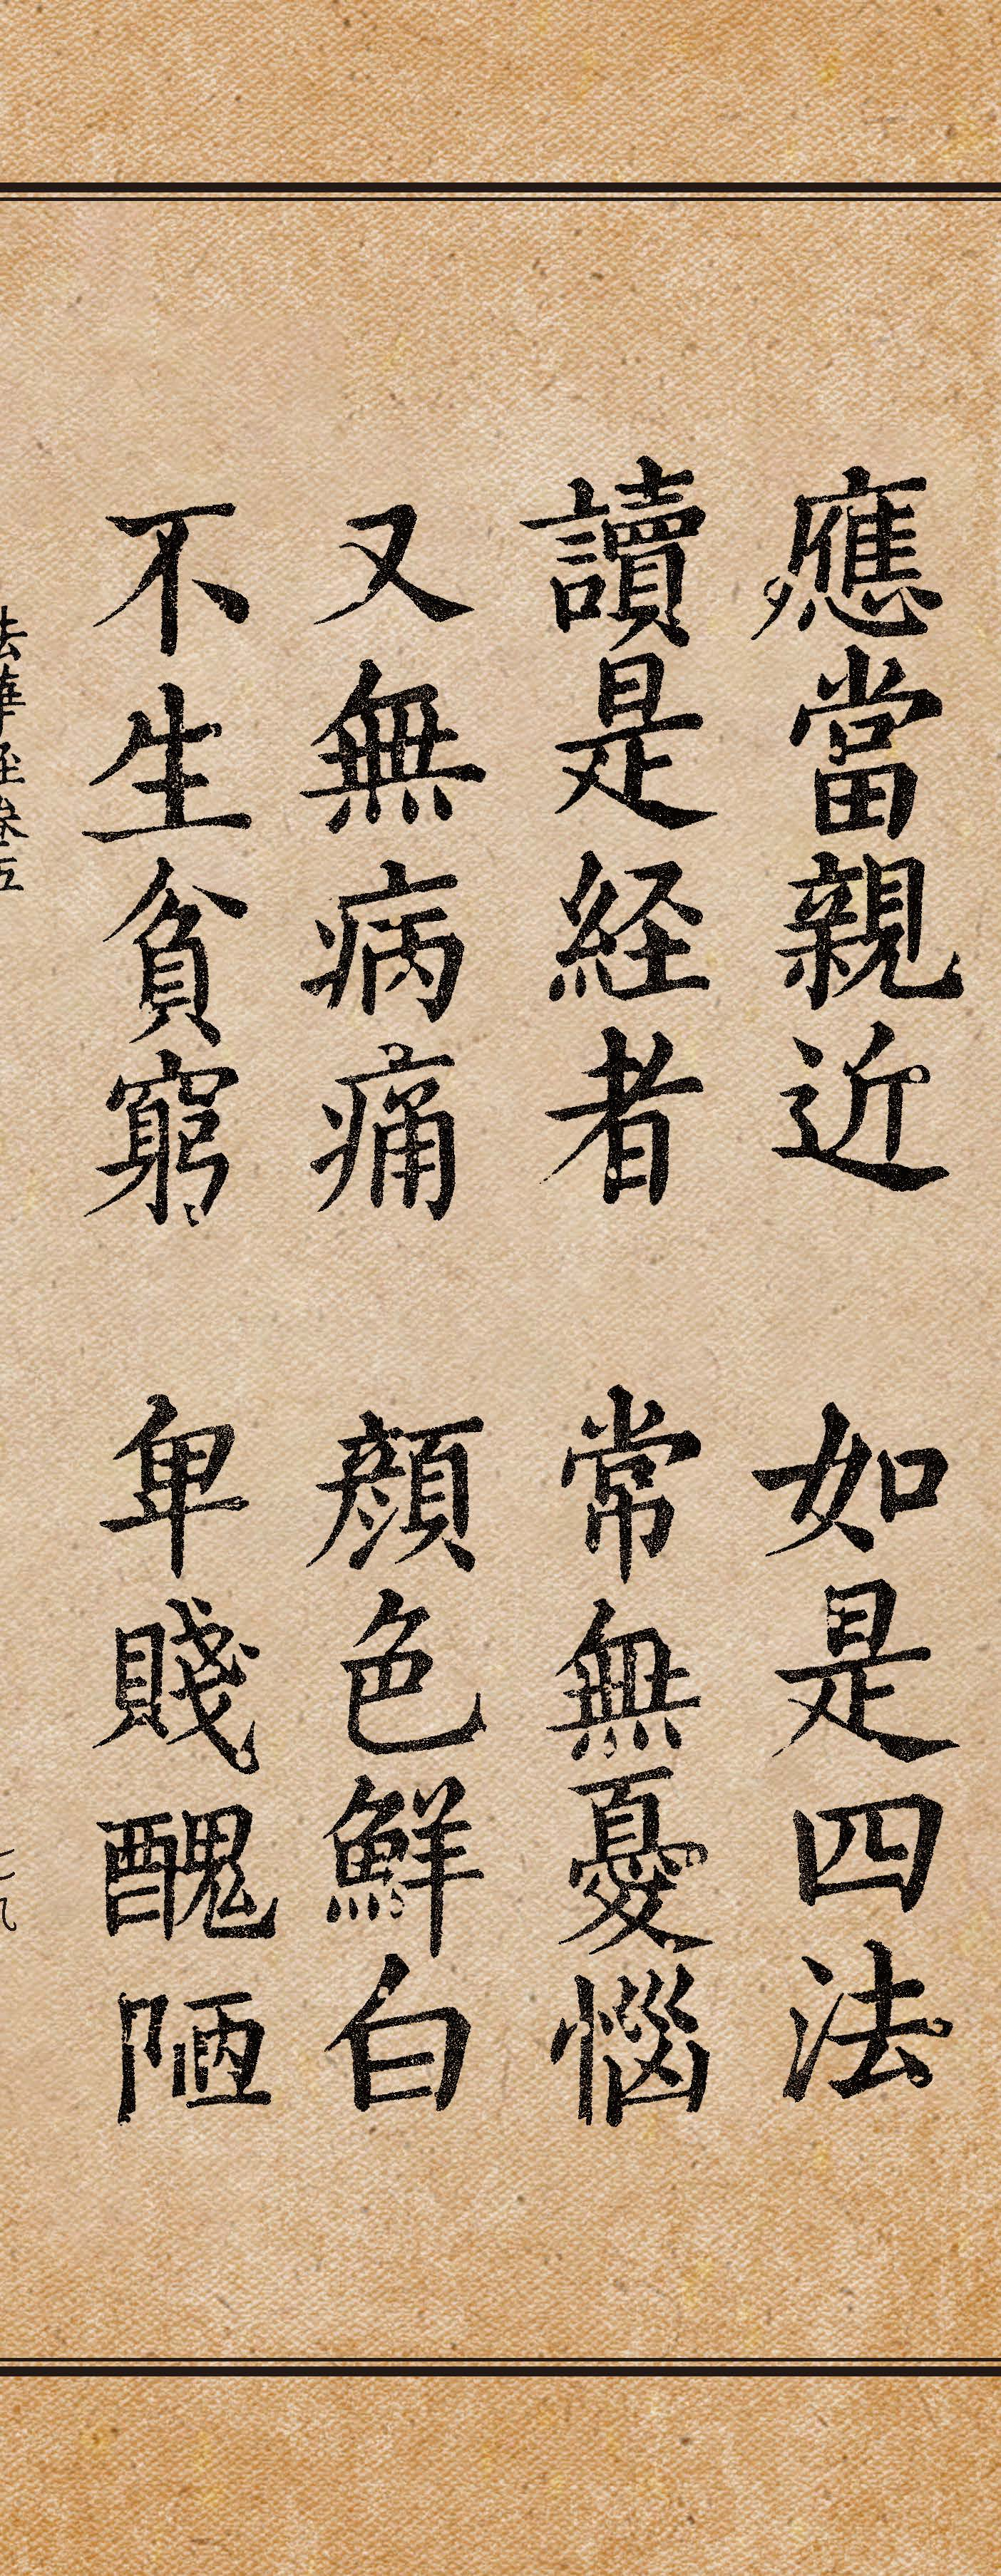 應當親近 如是四法
讀是経者 常無憂惱
又無病痛 顏色鮮白
不生貧窮 卑賤醜陋
法華経卷五